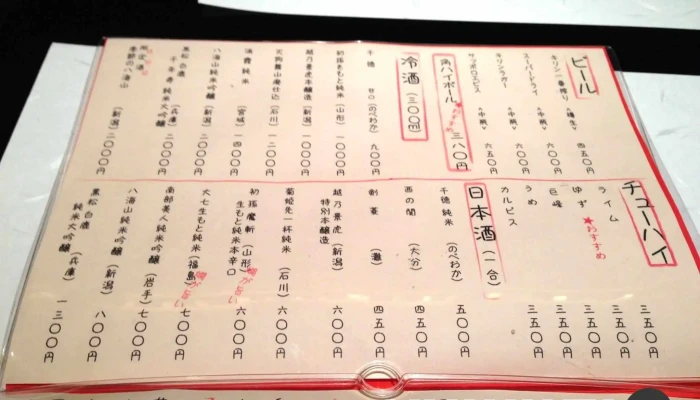 ビール
キリン一番搾り 〈樽生〉 四五〇円
スーパードライ 〈中瓶〉 六〇〇円
キリンラガー 〈中瓶〉 六〇〇円
サッポロヱビス 〈中瓶〉 六五〇円
角ハイボール 三八〇円
おすすめ
冷酒 (三〇〇ml)
千徳 辛口 (のべおか) 九〇〇円
初孫きもと純米 (山形) 一〇〇〇円
越乃景虎本醸造 (新潟) 一〇〇〇円
天狗舞山廃仕込 (石川) 一二〇〇円
浦霞純米 (宮城) 一四〇〇円
八海山純米吟醸 (新潟) 二〇〇〇円
黒松白鹿
千年寿 純米大吟醸 (兵庫) 二〇〇〇円
限定酒
季節の八海山 (新潟) 二〇〇〇円
チューハイ
ライム 三五〇円
ゆず ★おすすめ 三五〇円
巨峰 三五〇円
うめ 三五〇円
カルピス 三五〇円
日本酒 (一合)
千徳純米 (のべおか) 五〇〇円
西の関 (大分) 四五〇円
剣菱 (灘) 四五〇円
越乃景虎 (新潟)
特別本醸造 六〇〇円
菊姫先一杯純米 (石川) 六〇〇円
初孫魔斬 (山形)
生もと純米本辛口 六〇〇円
燗がうまい
大七生もと純米 (福島) 七〇〇円
燗がうまい
南部美人純米吟醸 (岩手) 七〇〇円
八海山純米吟醸 (新潟) 八〇〇円
黒松白鹿
純米大吟醸 (兵庫) 一三〇〇円